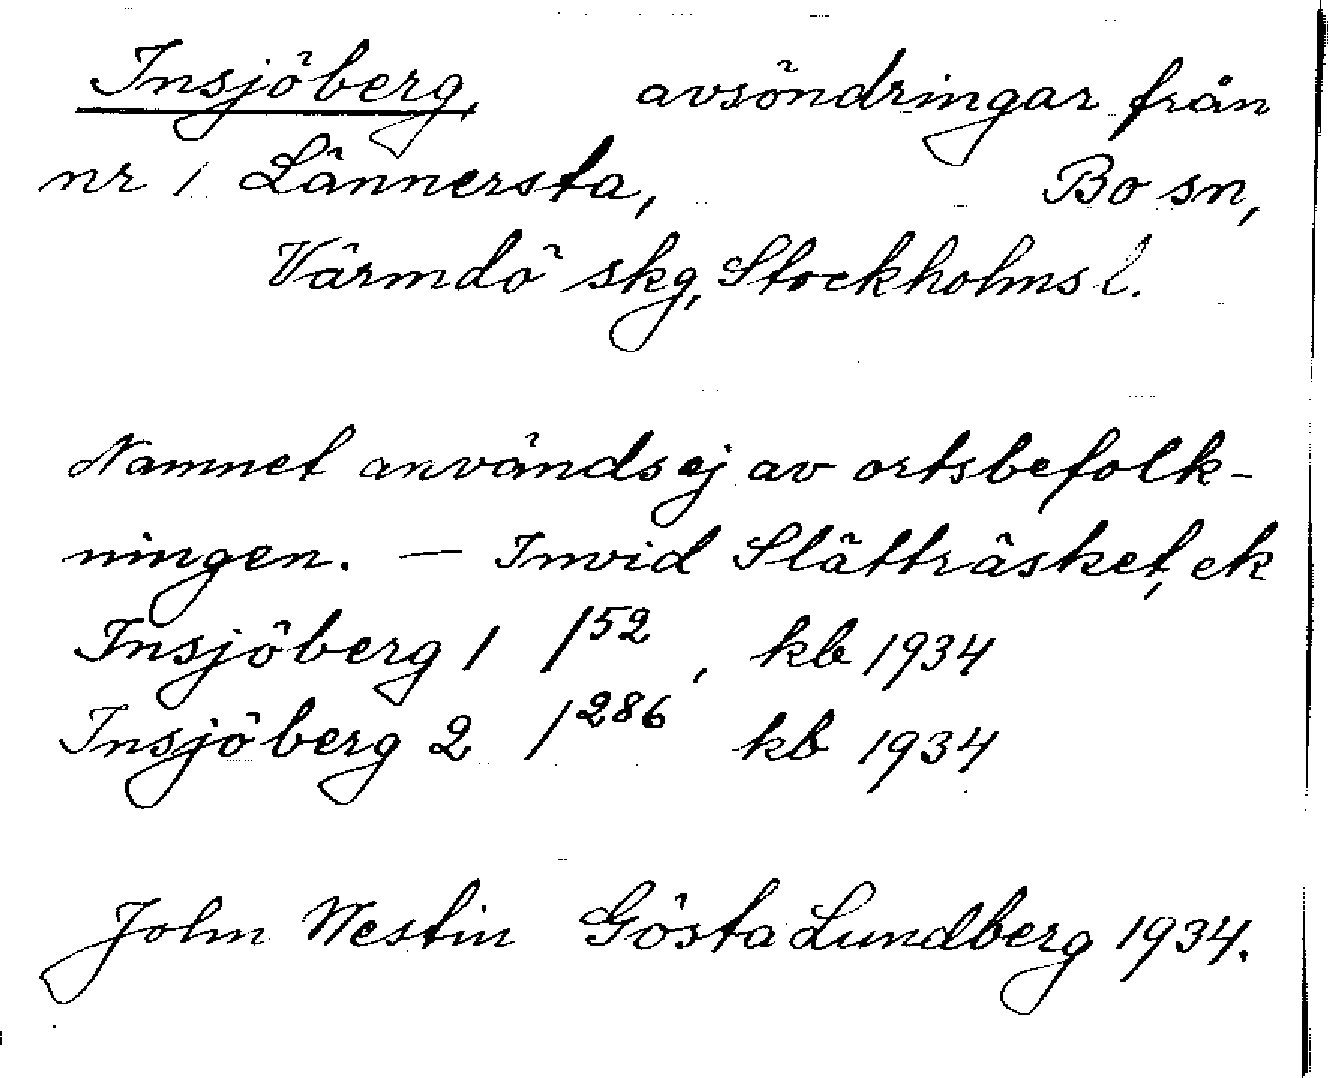 Insjöberg, avsöndringar från
nr 1 Lännersta, Bo sn,
Värmdö skg, Stockholms l.
Namnet användes ej av ortsbefolk-
ningen. — Invid Slätträsket, ek
Insjöberg 1 1⁵², kb 1934
Insjöberg 2 1²⁸⁶ kb 1934
John Westin Gösta Lundberg 1934.